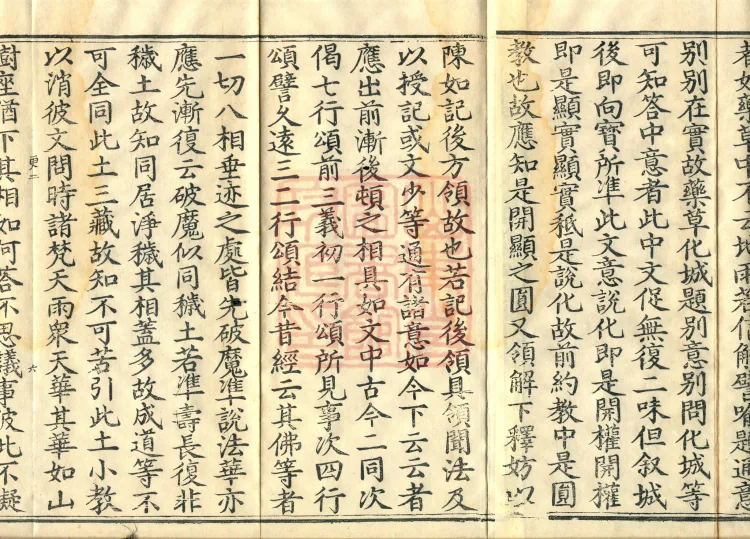 者如藥草中不云地雨若信解譬喻是通意
別別在實故藥草化城題別意別問化城等
可知答中意者此中文促無復二味但叙城
後即向寶所凖此文意說化即是開權開權
即是顯實顯實秖是說化故前約教中是圓
教也故應知是開顯之圓又領解下釋妨以
陳如記後方領故也若記後領具領聞法及
以授記或文少等通有諸意如今下云云者
應出前漸後頓之相具如文中古今二同次
偈七行頌前三義初一行頌所見事次四行
頌譬久遠三二行頌結今昔經云其佛等者
一切八相垂迹之處皆先破魔凖說法華亦
應先漸復云破魔似同穢土若凖壽長復非
穢土故知同居淨穢其相蓋多故成道等不
可全同此土三藏故知不可苦引此土小教
以消彼文問時諸梵天雨衆天華其華如山
更二 六
樹座猶下其相如何答不思議事彼此不礙